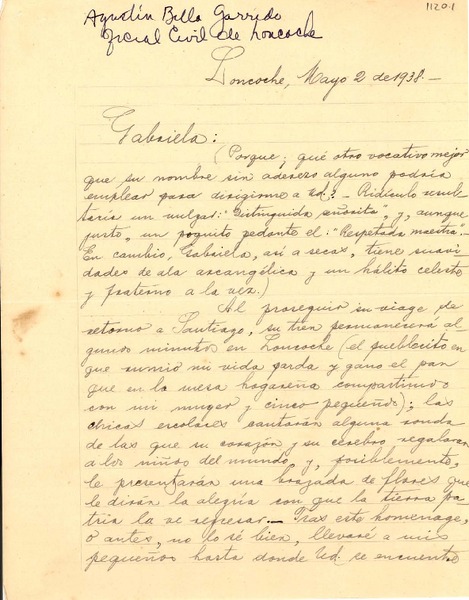 Agustín Billa Garrido
Oficial Civil de Loncoche
1120.1
Loncoche, Mayo 2 de 1938.-
Gabriela:
(Porque, qué otro vocativo mejor
que su nombre sin aderezo alguno podría
emplear para dirigirme a Ud.? - Ridículo resul-
taría un vulgar: "Distinguida señorita", y, aunque
justo, un poquito pedante el: "Respetada maestra".-
En cambio, Gabriela, así a secas, tiene suavi-
dades de ala arcangélica y un hálito celeste
y fraterno a la vez.)
Al proseguir su viaje de
retorno a Santiago, su tren permanecerá al-
gunos minutos en Loncoche (el pueblecito en
que sumió mi vida parda y gano el pan
que en la mesa hogareña compartimos
con mi mujer y cinco pequeños); las
chicas escolares cantarán alguna ronda
de las que su corazón y su cerebro regalaran
a los niños del mundo y, posiblemente,
le presentarán una brazada de flores que
le dirán la alegría con que la tierra pa-
tria la ve regresar.- Tras este homenaje,
o antes, no lo sé bien, llevaré a mis
pequeños hasta donde Ud. se encuentre